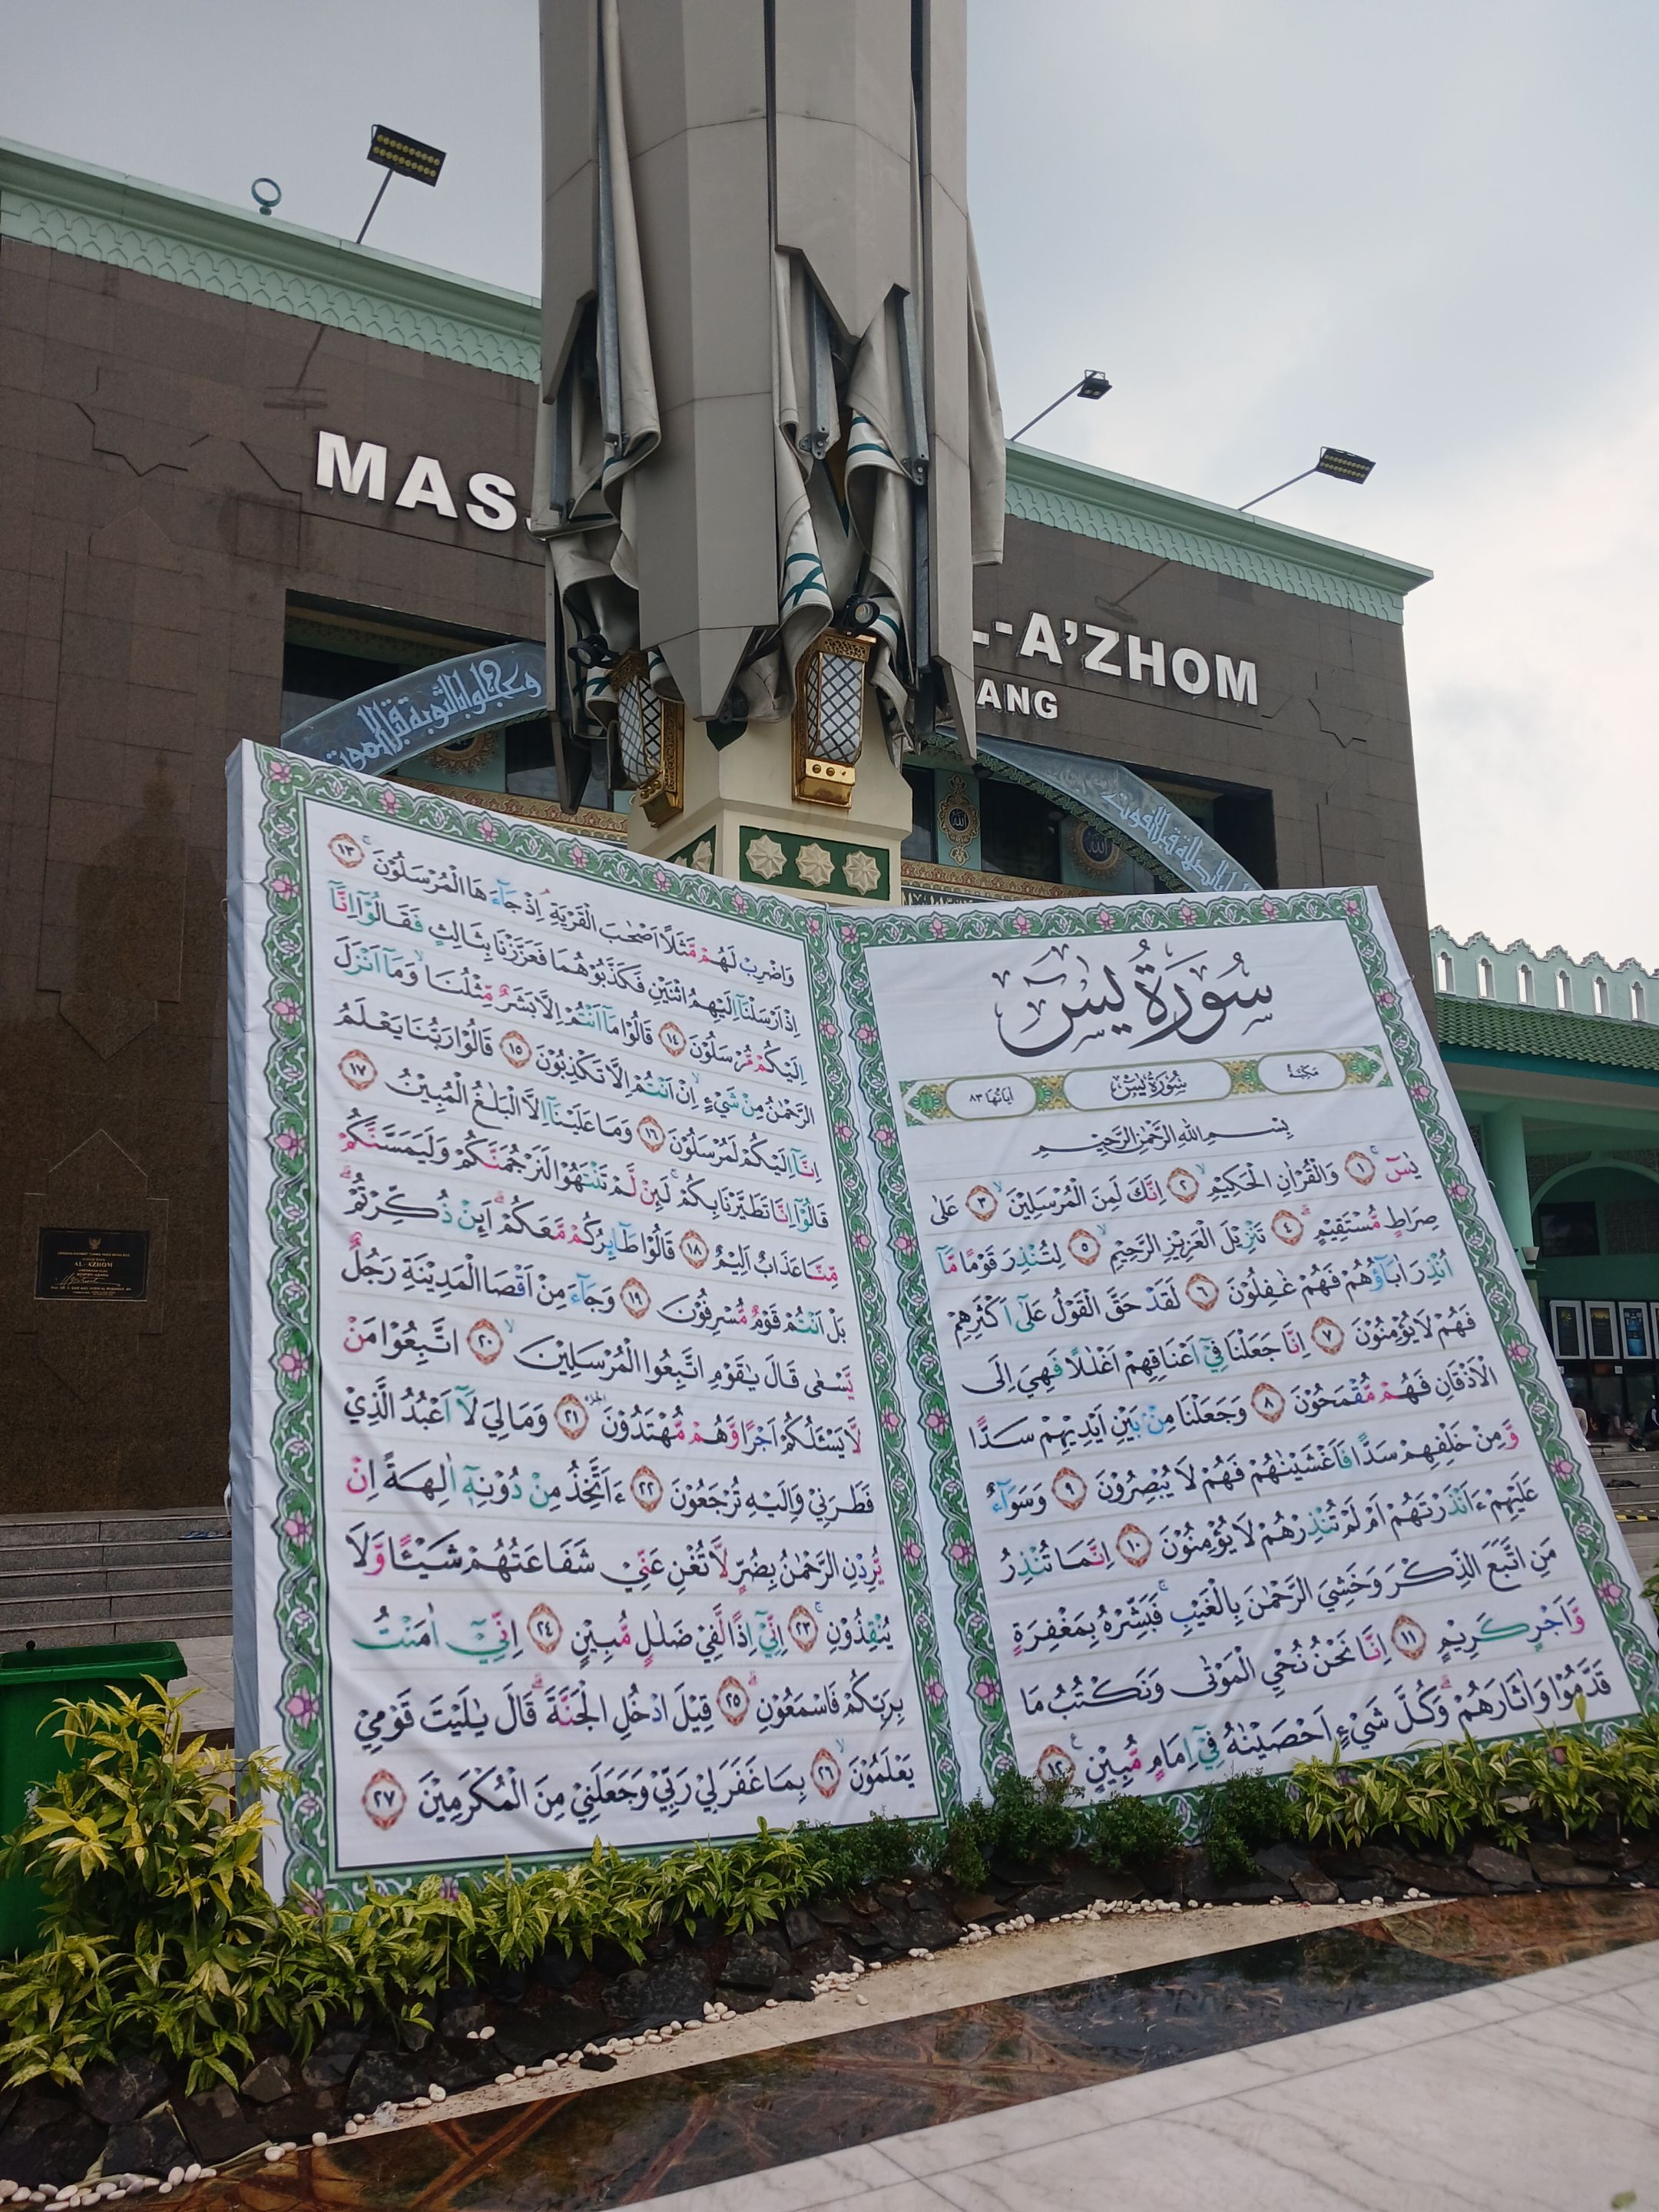 MAS
L-A'ZHOM
ANG
وعجلوا بالتوبة قبل الموت
سُورَةُ يٰسٓ
مَكِّيَّةٌ
سُورَةُ يٰسٓ
اٰيَاتُهَا ٨٣
بِسْمِ اللهِ الرَّحْمٰنِ الرَّحِيْمِ
يٰسٓ ۚ ١ وَالْقُرْاٰنِ الْحَكِيْمِۙ ٢ اِنَّكَ لَمِنَ الْمُرْسَلِيْنَۙ ٣ عَلٰى
صِرَاطٍ مُّسْتَقِيْمٍۗ ٤ تَنْزِيْلَ الْعَزِيْزِ الرَّحِيْمِۙ ٥ لِتُنْذِرَ قَوْمًا مَّآ
اُنْذِرَ اٰبَاۤؤُهُمْ فَهُمْ غٰفِلُوْنَ ٦ لَقَدْ حَقَّ الْقَوْلُ عَلٰٓى اَكْثَرِهِمْ
فَهُمْ لَا يُؤْمِنُوْنَ ٧ اِنَّا جَعَلْنَا فِيْٓ اَعْنَاقِهِمْ اَغْلٰلًا فَهِيَ اِلَى
الْاَذْقَانِ فَهُمْ مُّقْمَحُوْنَ ٨ وَجَعَلْنَا مِنْۢ بَيْنِ اَيْدِيْهِمْ سَدًّا
وَّمِنْ خَلْفِهِمْ سَدًّا فَاَغْشَيْنٰهُمْ فَهُمْ لَا يُبْصِرُوْنَ ٩ وَسَوَاۤءٌ
عَلَيْهِمْ ءَاَنْذَرْتَهُمْ اَمْ لَمْ تُنْذِرْهُمْ لَا يُؤْمِنُوْنَ ١٠ اِنَّمَا تُنْذِرُ
مَنِ اتَّبَعَ الذِّكْرَ وَخَشِيَ الرَّحْمٰنَ بِالْغَيْبِۚ فَبَشِّرْهُ بِمَغْفِرَةٍ
وَّاَجْرٍ كَرِيْمٍ ١١ اِنَّا نَحْنُ نُحْيِ الْمَوْتٰى وَنَكْتُبُ مَا
قَدَّمُوْا وَاٰثَارَهُمْۗ وَكُلَّ شَيْءٍ اَحْصَيْنٰهُ فِيْٓ اِمَامٍ مُّبِيْنٍ ࣖ ١٢
وَاضْرِبْ لَهُمْ مَّثَلًا اَصْحٰبَ الْقَرْيَةِۘ اِذْ جَاۤءَهَا الْمُرْسَلُوْنَۚ ١٣
اِذْ اَرْسَلْنَآ اِلَيْهِمُ اثْنَيْنِ فَكَذَّبُوْهُمَا فَعَزَّزْنَا بِثَالِثٍ فَقَالُوْٓا اِنَّآ
اِلَيْكُمْ مُّرْسَلُوْنَ ١٤ قَالُوْا مَآ اَنْتُمْ اِلَّا بَشَرٌ مِّثْلُنَاۙ وَمَآ اَنْزَلَ
الرَّحْمٰنُ مِنْ شَيْءٍۙ اِنْ اَنْتُمْ اِلَّا تَكْذِبُوْنَ ١٥ قَالُوْا رَبُّنَا يَعْلَمُ
اِنَّآ اِلَيْكُمْ لَمُرْسَلُوْنَ ١٦ وَمَا عَلَيْنَآ اِلَّا الْبَلٰغُ الْمُبِيْنُ ١٧
قَالُوْٓا اِنَّا تَطَيَّرْنَا بِكُمْۚ لَىِٕنْ لَّمْ تَنْتَهُوْا لَنَرْجُمَنَّكُمْ وَلَيَمَسَّنَّكُمْ
مِّنَّا عَذَابٌ اَلِيْمٌ ١٨ قَالُوْا طَاۤىِٕرُكُمْ مَّعَكُمْۗ اَىِٕنْ ذُكِّرْتُمْۗ
بَلْ اَنْتُمْ قَوْمٌ مُّسْرِفُوْنَ ١٩ وَجَاۤءَ مِنْ اَقْصَا الْمَدِيْنَةِ رَجُلٌ
يَّسْعٰى قَالَ يٰقَوْمِ اتَّبِعُوا الْمُرْسَلِيْنَۙ ٢٠ اتَّبِعُوْا مَنْ
لَّا يَسْـَٔلُكُمْ اَجْرًا وَّهُمْ مُّهْتَدُوْنَ ٢١ وَمَا لِيَ لَآ اَعْبُدُ الَّذِيْ
فَطَرَنِيْ وَاِلَيْهِ تُرْجَعُوْنَ ٢٢ ءَاَتَّخِذُ مِنْ دُوْنِهٖٓ اٰلِهَةً اِنْ
يُّرِدْنِ الرَّحْمٰنُ بِضُرٍّ لَّا تُغْنِ عَنِّيْ شَفَاعَتُهُمْ شَيْـًٔا وَّلَا
يُنْقِذُوْنِۚ ٢٣ اِنِّيْٓ اِذًا لَّفِيْ ضَلٰلٍ مُّبِيْنٍ ٢٤ اِنِّيْٓ اٰمَنْتُ
بِرَبِّكُمْ فَاسْمَعُوْنِۗ ٢٥ قِيْلَ ادْخُلِ الْجَنَّةَۗ قَالَ يٰلَيْتَ قَوْمِيْ
يَعْلَمُوْنَۙ ٢٦ بِمَا غَفَرَ لِيْ رَبِّيْ وَجَعَلَنِيْ مِنَ الْمُكْرَمِيْنَ ٢٧
AL - AZHOM